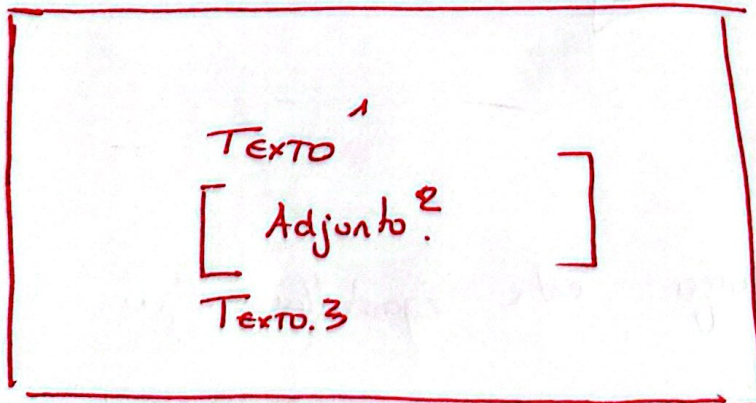 Texto 1
[ Adjunto. 2 ]
Texto. 3